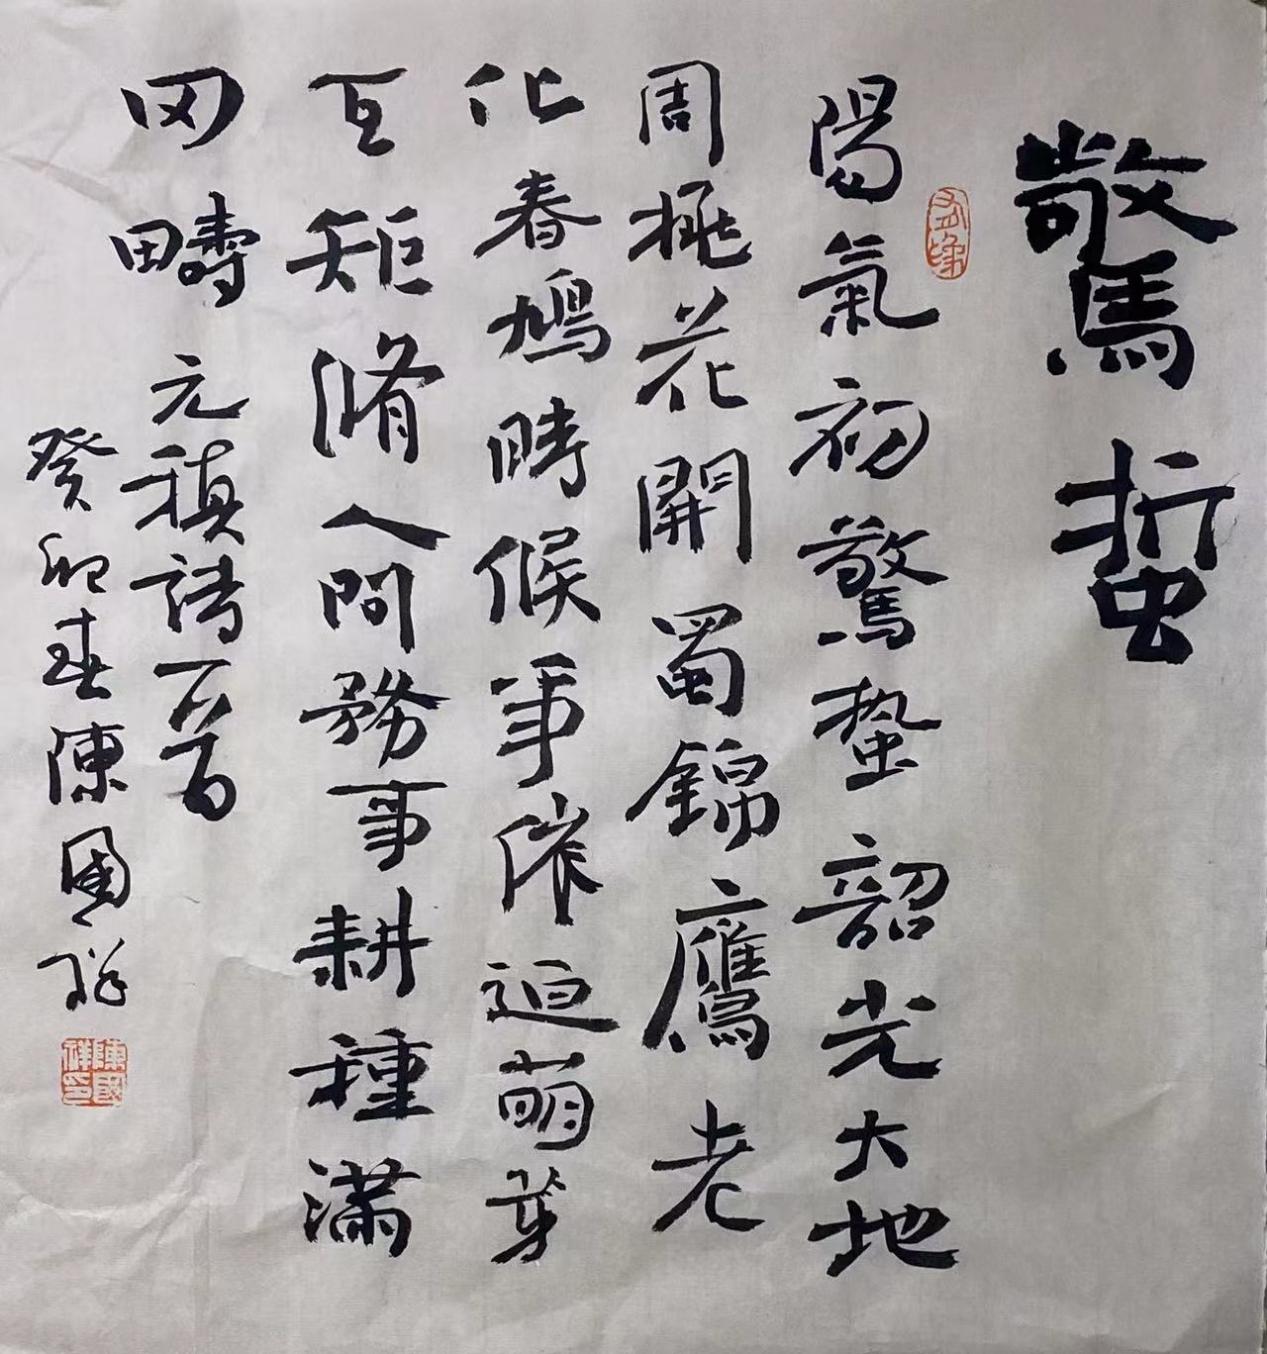 驚蜇
陽氣初驚蟄韶光大地
周桃花開蜀錦鷹老
化春鳩時候爭催迫萌芽
互矩脩人問務事耕種滿
田疇 元稹詩一首
癸卯春陳國祥
陳國祥印